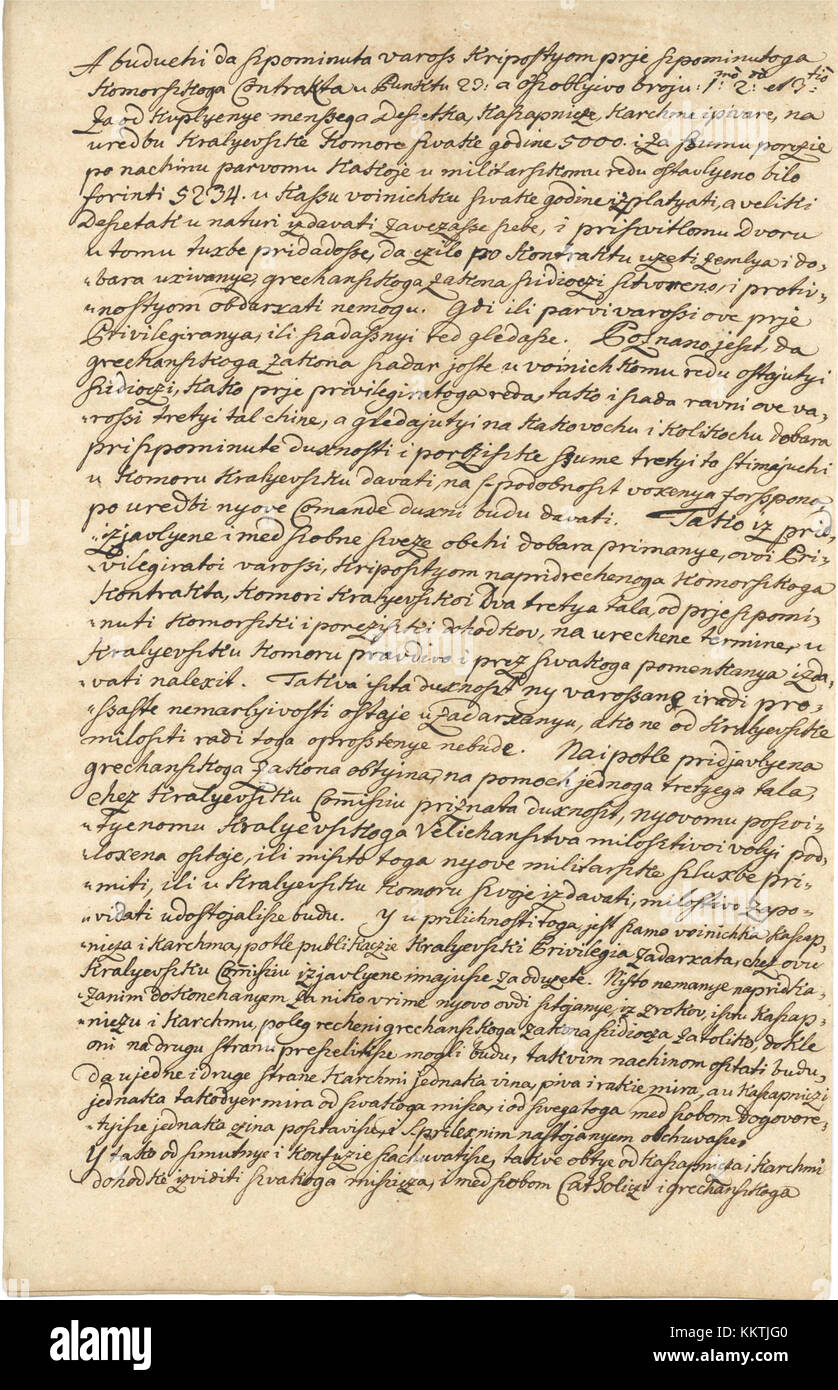 A buduchi da szpominuta vaross Kripostyom prje szpominutoga
Komorszkoga Contrakta u Punktu 23: a oszoblyivo broju: 1mo 2do et 13tio
za od kuplyenye menssega Deszetka, Kaszapnicze, Karchme i pivare, na
uredbu Kralyevszke Komore szvake godine 5000. i za szumu porczie
po nachinu parvomu kakoje u militarszkomu redu osztavlyeno bilo
forinti 5234. u Kassu voinichku szvake godine izplatyati, a veliki
Deszetak u naturi izdavati zavezasse szebe, i priszvitlomu Dvoru
u tomu tuxbe pridadosse, da czilo po Kontraktu uzeti zemlya i do-
-bara uxivanye, grechanszkoga zakona szidioczi sztvoreno, i protiv-
-nostyom obdarxati nemogu. Gdi ili parvi varossi ove prje
Privilegiranya, ili szadassnyi red gledasze. Poznano jeszt, da
grechanszkoga zakona szadar joste u voinichkomu redu osztajutyi
szidioczi, kako prje privilegiratoga reda, tako i szada ravni ove va-
-rossi tretyi tal chine, a gledajutyi na kakovochu i kolikochu dobara
priszpominute duxnosti i porcziszke szume tretyi to stimajuchi
u Komoru Kralyevszku davati, na szpodobnoszt voxenya forssponov
po uredbi nyove Comande duxni budu davati. Tako iz prie,
-izjavlyene i med szobne szveze obchi dobara primanye, ovoi Pri-
-vilegiratoi varossi, Kriposztyom napridrechenoga Komorszkoga
Kontrakta, Komori Kralyevszkoi Dva tretya tala, od prjeszpomi-
-nuti Komorszki i porcziszki dohodkov, na urechene termine, u
Kralyevszku Komoru pravdivo i prez szvakoga pomenkanya izda-
vati nalexit. Takva iszta duxnoszt ny varossane iradi pro-
-ssaste nemarlyivosti osztaje u zadarxanyu, ako ne od Kralyevszke
miloszti radi toga oprosstenye nebude. Nai potle pridjavlyena
grechanszkoga zakona obtyina, na pomoch jednoga tretyega tala,
chez Kralyevszku Comissiu priznata duxnoszt, nyovomu poszvi-
-tyenomu Kralyevszkoga Velichansztva miloztivoi volyi pod-
-loxena osztaje, ili miszto toga nyove militarszke szluxbe pri-
-miti, ili u Kralyevszku Komoru szvoje izdavati, milosztivo zapo-
-vidati udosztojalisze budu. Y u prilichnosti toga, jest szamo voinichka kaszap-
-nicza i Karchma, potle publikaczie Kralyevszki Privilegia zadarxata, chez ovu
Kralyevszku Comissiu izjavlyene imajusze za oduzete. Nisto nemanye napridka,
zanim dokonchanyem za niko vrime nyovo ovdi sztojanye, iz zrokov, iszvu Kaszap-
-niczu i Karchmu, poleg recheni grechanszkoga zakona szidiocza zatoliko, dokle
oni na drugu stranu preszelitisze mogli budu, takvim nachinom osztati budu,
Da u jedne i druge strane Karchmi jednaka vina, piva i rakie mira, a u kaszapniczi
jednaka takodyer mira od szvakoga misza, i od szvega toga med szobom dogovore-
-tyisze jednaka czina posztavisze, i szprilexnim nasztojanyem obchuvasze,
Y tako od szmutnye i konfuzie szachuvatisze, takve obtye od Kaszapnicza i Karchmi
dohodke izviditi szvakoga miszecza, i med szobom Catholiczi i grechanszkoga